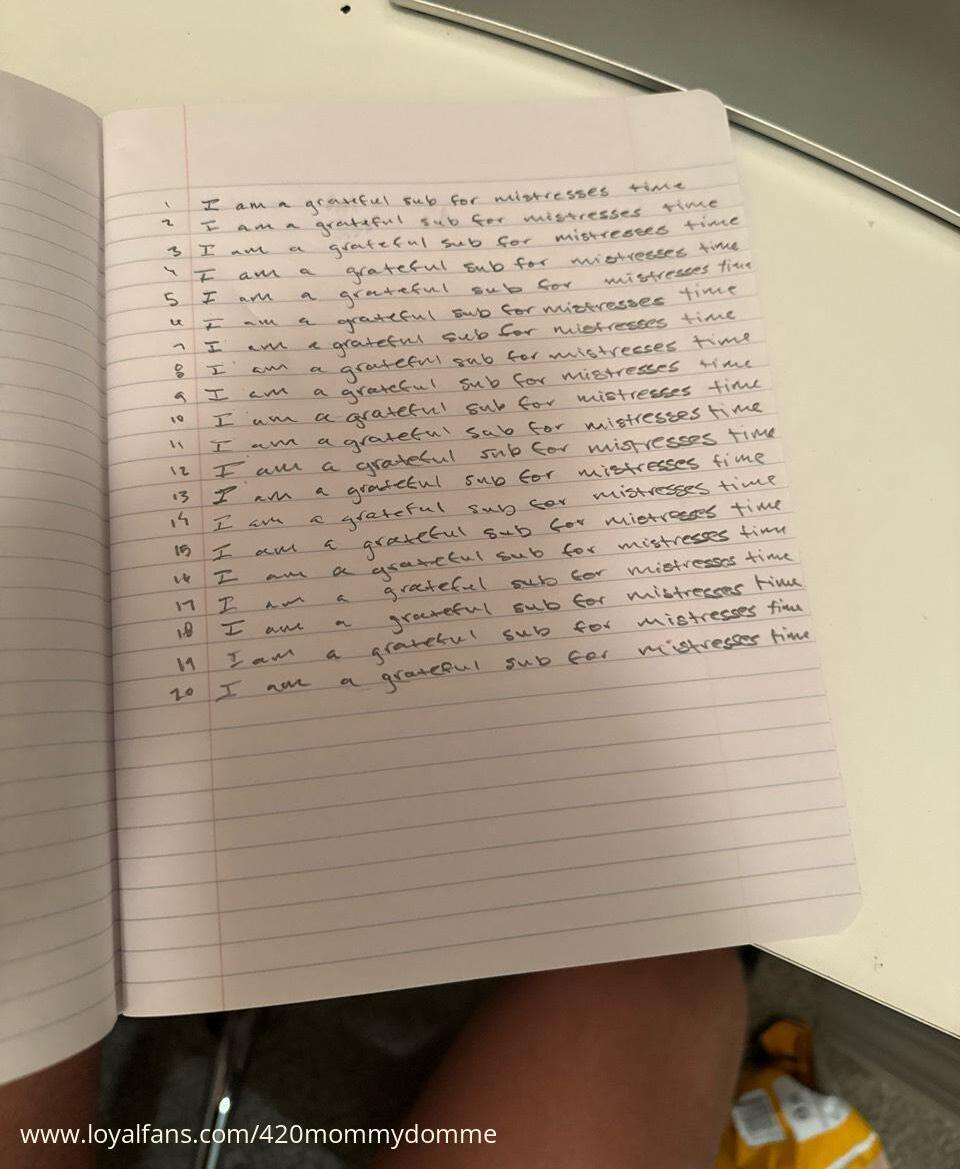 1 I am a grateful sub for mistresses time
2 I am a grateful sub for mistresses time
3 I am a grateful sub for mistresses time
4 I am a grateful sub for mistresses time
5 I am a grateful sub for mistresses time
6 I am a grateful sub for mistresses time
7 I am a grateful sub for mistresses time
8 I am a grateful sub for mistresses time
9 I am a grateful sub for mistresses time
10 I am a grateful sub for mistresses time
11 I am a grateful sub for mistresses time
12 I am a grateful sub for mistresses time
13 I am a grateful sub for mistresses time
14 I am a grateful sub for mistresses time
15 I am a grateful sub for mistresses time
16 I am a grateful sub for mistresses time
17 I am a grateful sub for mistresses time
18 I am a grateful sub for mistresses time
19 I am a grateful sub for mistresses time
20 I am a grateful sub for mistresses time
www.loyalfans.com/420mommydomme